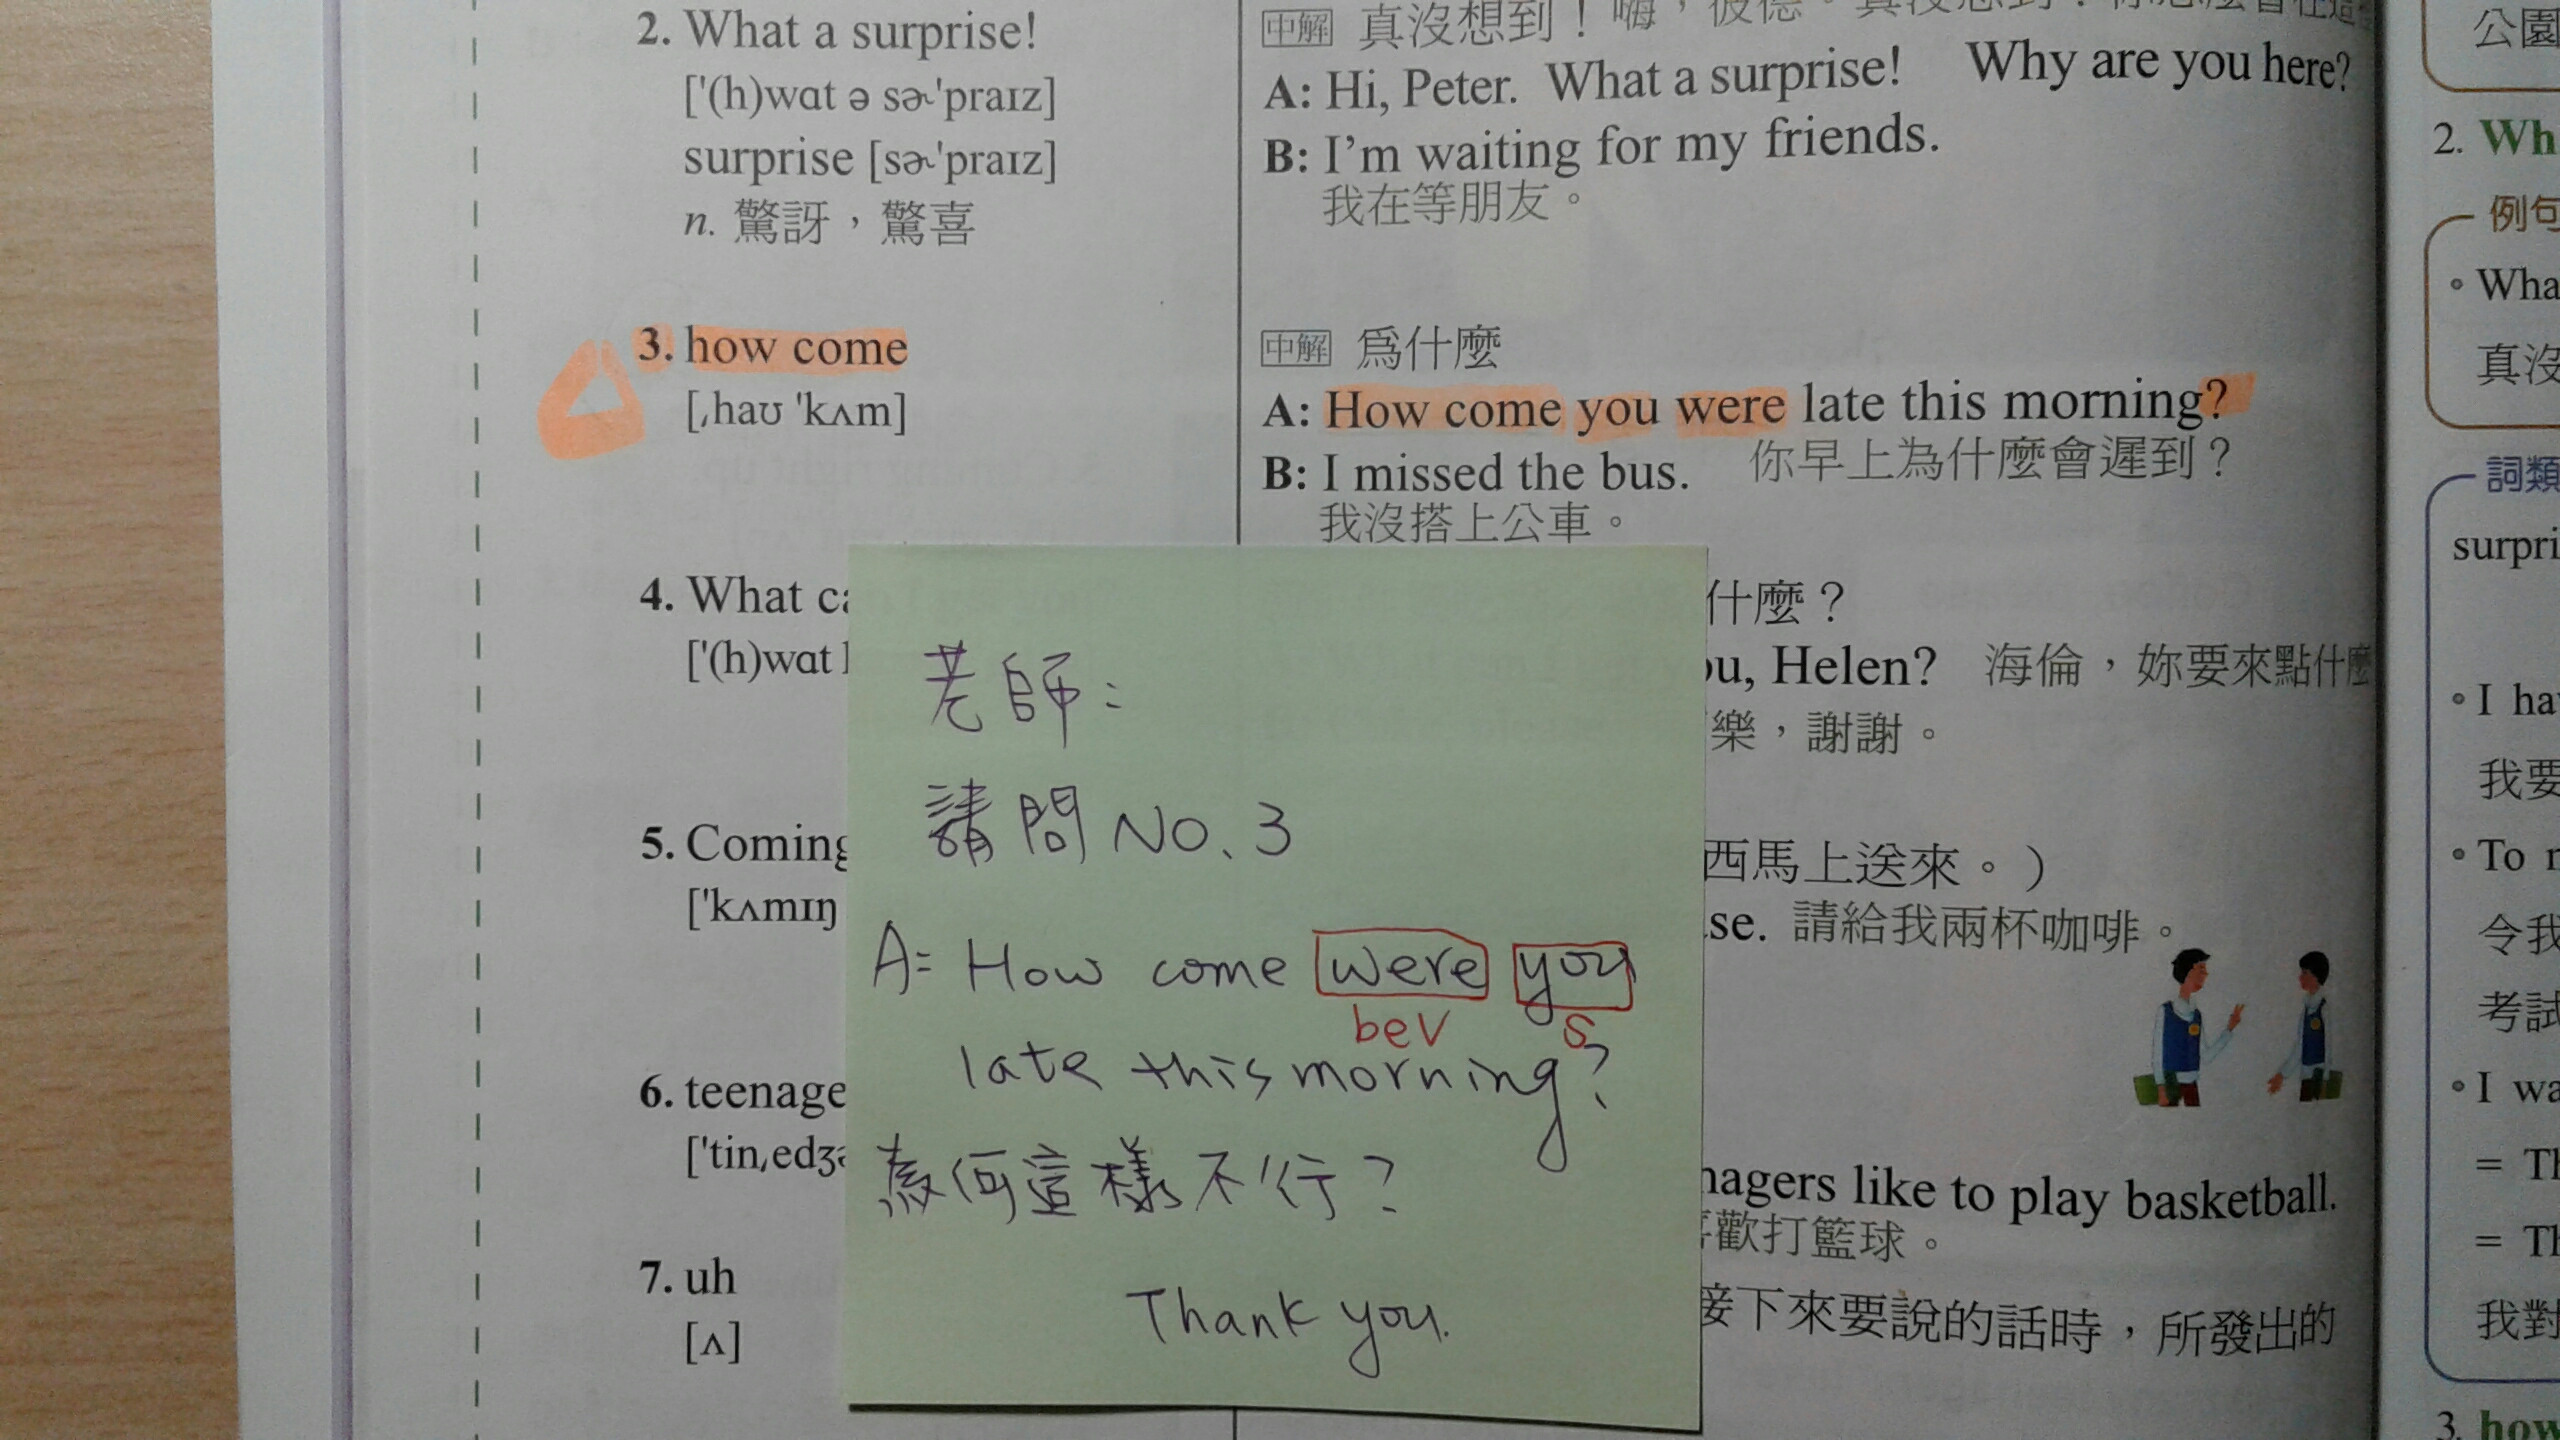 2. What a surprise!
['(h)wɑt ə sɚ'praɪz]
surprise [sɚ'praɪz]
n. 驚訝，驚喜
3. how come
[ˌhaʊ 'kʌm]
4. What
['(h)wɑt
5. Coming
['kʌmɪŋ
6. teenage
['tinˌedʒ
7. uh
[ʌ]
中解 真沒想到！嗨，彼德。真沒想到！
A: Hi, Peter. What a surprise! Why are you here?
B: I'm waiting for my friends.
我在等朋友。
中解 爲什麼
A: How come you were late this morning?
你早上為什麼會遲到？
B: I missed the bus.
我沒搭上公車。
什麼？
ou, Helen? 海倫，妳要來點什麼
樂，謝謝。
西馬上送來。）
se. 請給我兩杯咖啡。
nagers like to play basketball.
喜歡打籃球。
接下來要說的話時，所發出的
老師：
請問 NO. 3
A: How come were you
beV S
late this morning?
為何這樣不行？
Thank you.
公園
2. Wh
例句
• Wha
真沒
詞類
surpri
• I ha
我要
• To
令我
考試
• I wa
= Th
= Th
我對
3. how